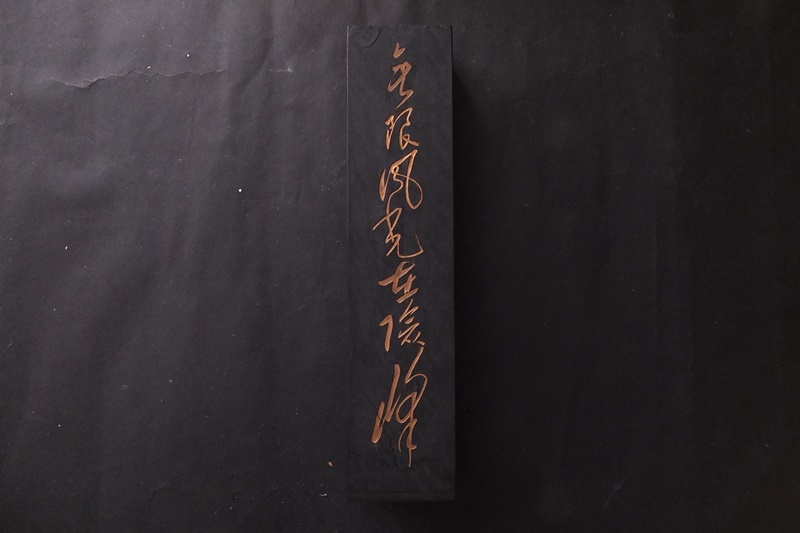 无限风光在險峰